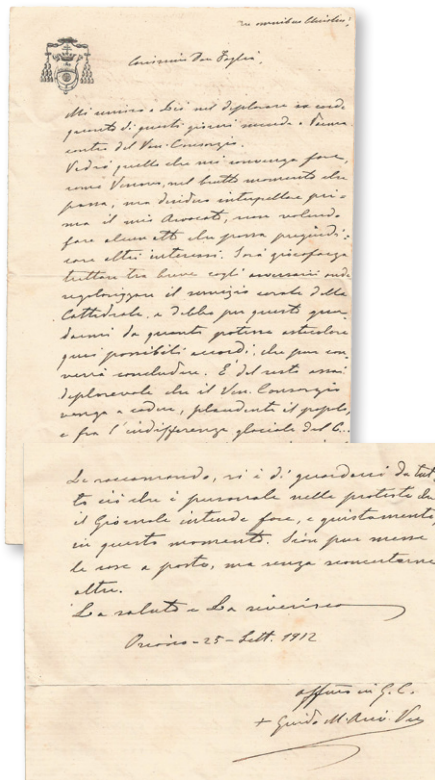 In omnibus Christus!
Carissimo Don Foglio,
Mi unisco a Lei nel deplorare
quanto di questi giorni succede a
contro del Ven. Consorzio.
Vedrò quello che mi convenga fare,
come Vescovo, nel brutto momento che
passa, ma desidero interpellare pri-
ma il mio Avvocato, non volendo
fare alcun atto che possa pregiudi-
care altri interessi. Sarà giocoforza
trattare tra breve cogli avversarii onde
regolarizzare il servizio corale della
Cattedrale, e debbo per questo guar-
darmi da quanto potesse ostacolare
quei possibili accordi, che pur con-
verrà concludere. È del resto assai
deplorevole che il Ven. Consorzio
venga a cadere, plaudente il popolo,
e fra l'indifferenza glaciale del
Le raccomando, si è di guardarsi da tut-
to ciò che è personale nelle proteste che
il Giornale intende fare, e giustamente
in questo momento. Sian pur messe
le cose a posto, ma senza
altro.
La saluto e La riverisco
25 - Sett. 1912
affmo in G. C.
+ Guido M. Arciv. Vesc